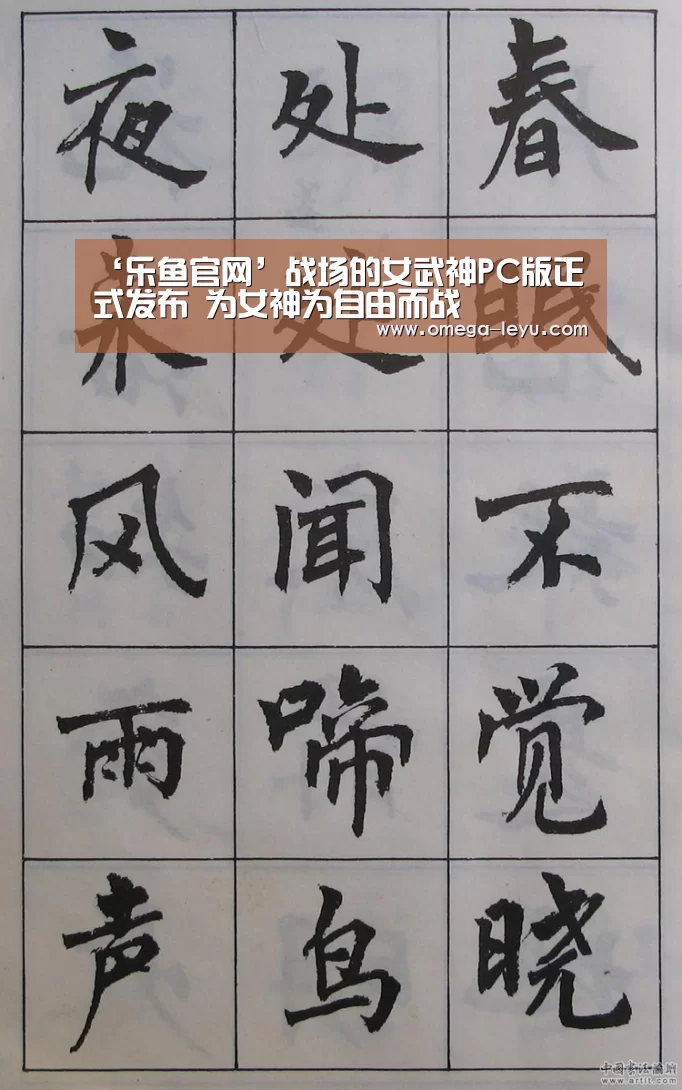 春眠不觉晓
处处闻啼鸟
夜来风雨声
‘乐鱼官网’战场的女武神PC版正
式发布 为女神为自由而战
www.omega-leyu.com
中国书法论坛
www.artit.com